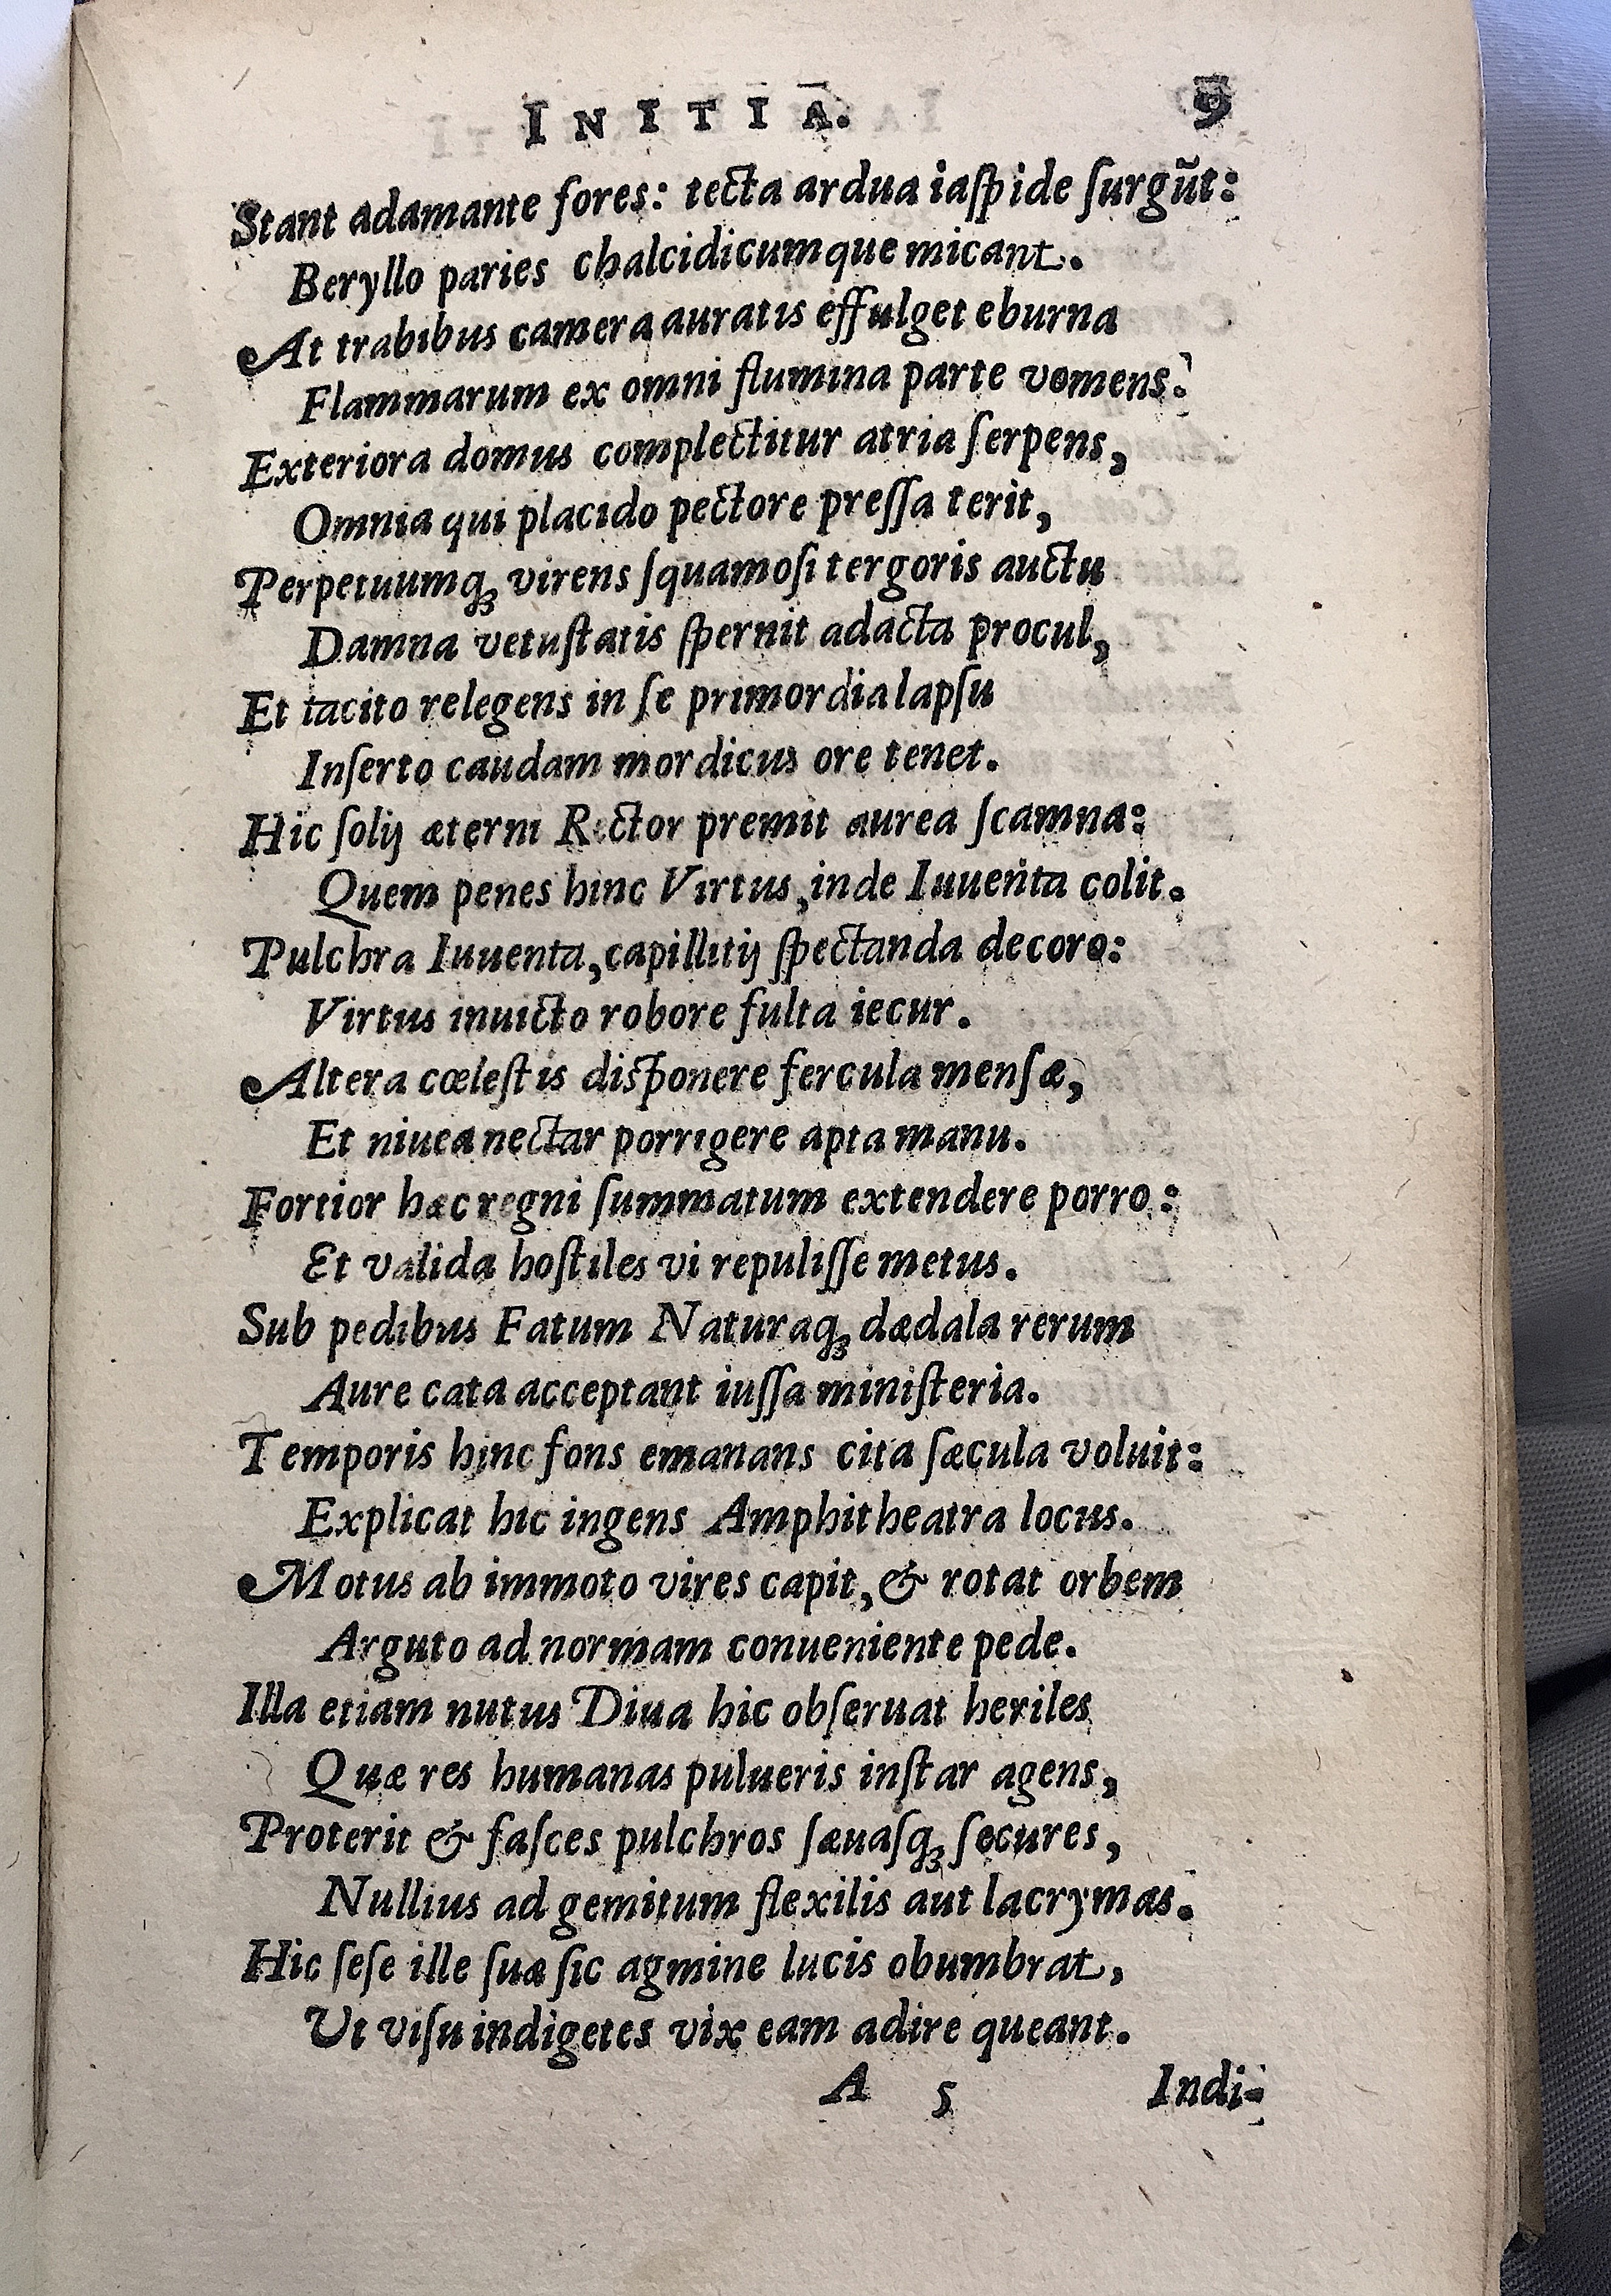 INITIA. 9
Stant adamante fores: tecta ardua iaſpide ſurgũt:
Beryllo paries chalcidicumque micant.
At trabibus camera auratis effulget eburna
Flammarum ex omni flumina parte vomens.
Exteriora domus complectitur atria ſerpens,
Omnia qui placido pectore preſſa terit,
Perpetuumq́ꝫ virens ſquamoſi tergoris auctu
Damna vetuſtatis ſpernit adacta procul,
Et tacito relegens in ſe primordia lapſu
Inſerto caudam mordicus ore tenet.
Hic ſolij æterni Rector premit aurea ſcamna:
Quem penes hinc Virtus, inde Iuuenta colit.
Pulchra Iuuenta, capillitij ſpectanda decoro:
Virtus inuicto robore fulta iecur.
Altera cœleſtis diſponere fercula menſæ,
Et niuea nectar porrigere apta manu.
Fortior hæc regni ſummatum extendere porro:
Et valida hoſtiles vi repuliſſe metus.
Sub pedibus Fatum Naturaq́ꝫ dædala rerum
Aure cata acceptant iuſſa miniſteria.
Temporis hinc fons emanans cita ſæcula voluit:
Explicat hic ingens Amphitheatra locus.
Motus ab immoto vires capit, & rotat orbem
Arguto ad normam conueniente pede.
Illa etiam nutus Diua hic obſeruat heriles
Quæ res humanas pulueris inſtar agens,
Proterit & faſces pulchros ſæuaſq́ꝫ ſecures,
Nullius ad gemitum flexilis aut lacrymas.
Hic ſeſe ille ſuæ ſic agmine lucis obumbrat,
Ut viſu indigetes vix eam adire queant.
A 5 Indi-